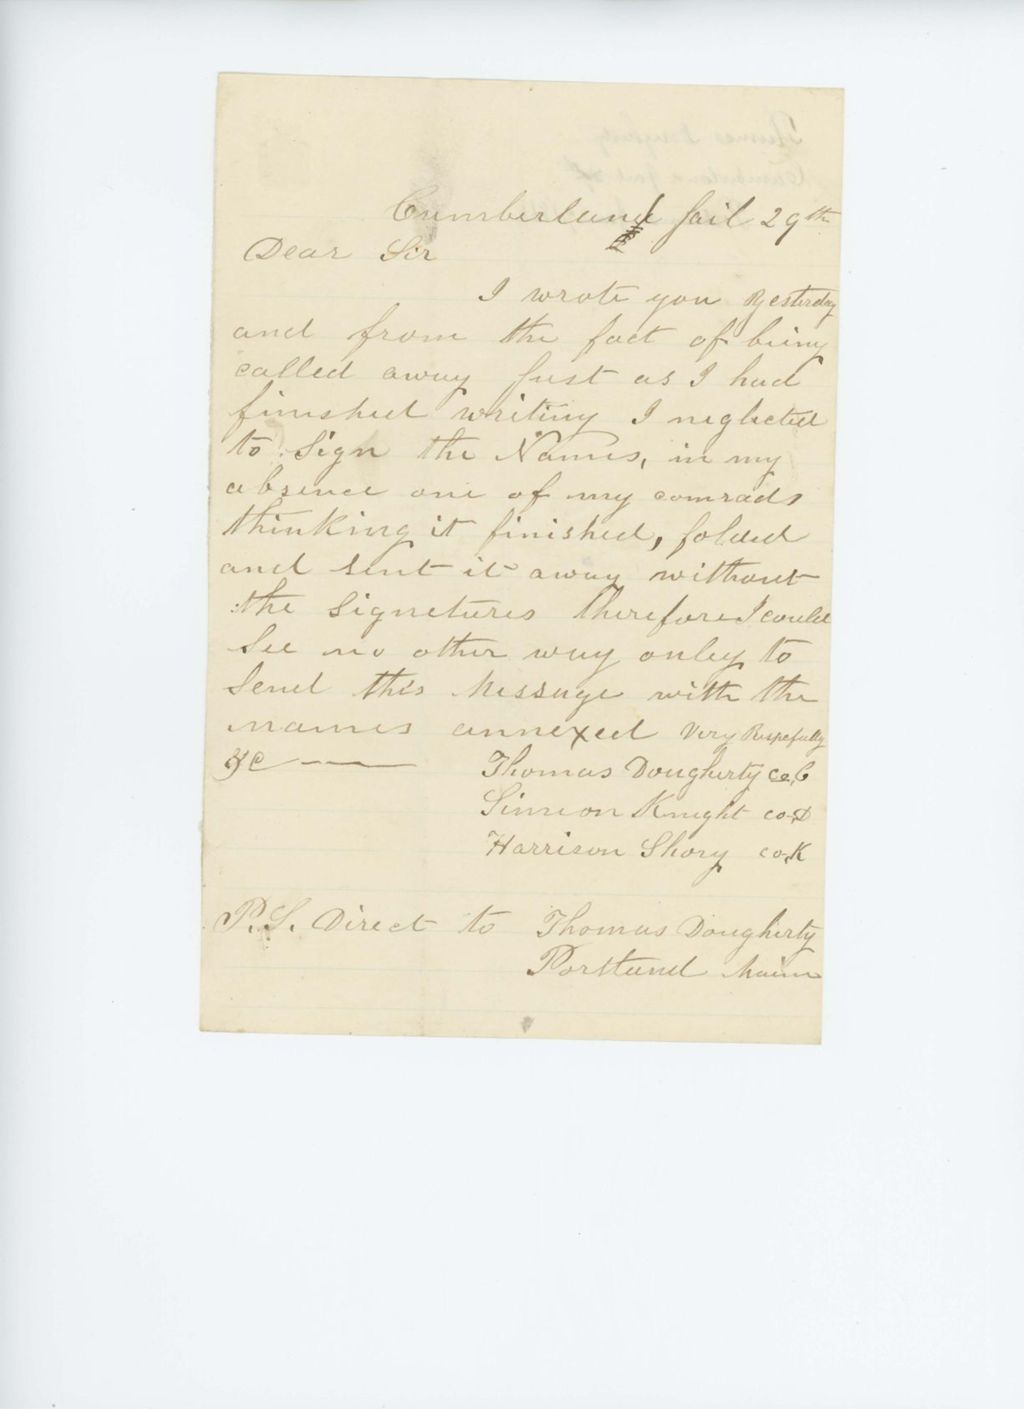 Cumberland Jail 29th
Dear Sir
I wrote you Yesterday
and from the fact of being
called away Just as I had
finished writing I neglected
to Sign the Names, in my
absence one of my comrads
thinking it finished, folded
and sent it away without
the Signetures therefore I could
See no other way onley to
Send this Message with the
names annexed Very Respefully
&C
Thomas Dougherty Co, C
Simeon Knight Co, D
Harrison Shory Co, K
P.S. Direct to Thomas Dougherty
Portland Maine